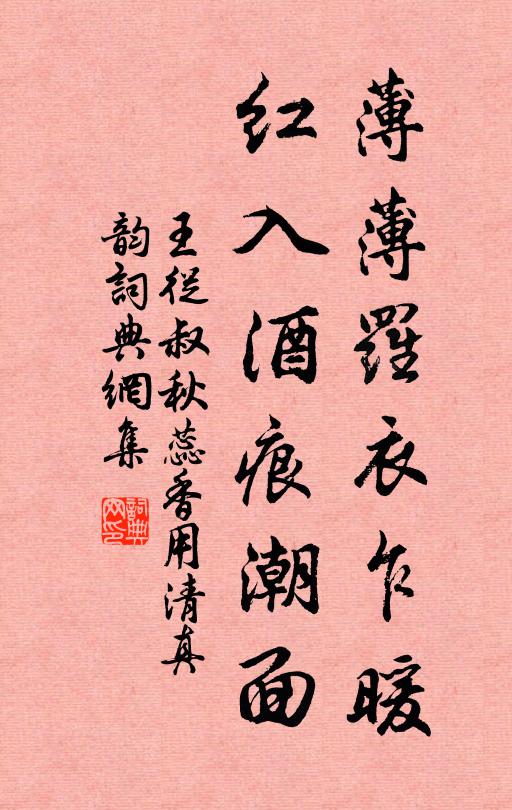 薄薄羅衣乍暖
紅入酒痕潮面
王從叔秋蕊香用清真
韵詞典網集
詞典網印